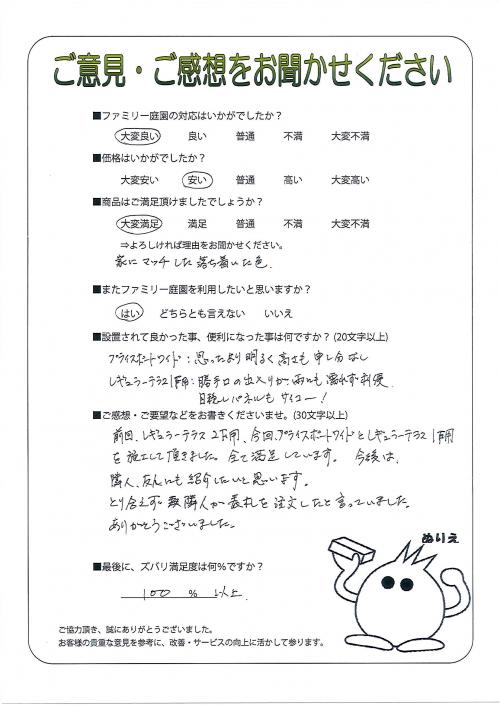 ご意見・ご感想をお聞かせください
■ファミリー庭園の対応はいかがでしたか？
大変良い 良い 普通 不満 大変不満
■価格はいかがでしたか？
大変安い 安い 普通 高い 大変高い
■商品はご満足頂けましたでしょうか？
大変満足 満足 普通 不満 大変不満
⇒よろしければ理由をお聞かせください。
家にマッチした落ち着いた色。
■またファミリー庭園を利用したいと思いますか？
はい どちらとも言えない いいえ
■設置されて良かった事、便利になった事は何ですか？(20文字以上)
プライスポートワイド：思ったより明るく高さも申し分なし
レギュラーテラス1F用：勝手口の出入りが雨にも濡れず利便、
目隠しパネルもサイコー！
■ご感想・ご要望などをお書きくださいませ。(30文字以上)
前回、レギュラーテラス2F用、今回、プライスポートワイドとレギュラーテラス1F用
を施工して頂きました。全て満足しています。今後は、
隣人、友人にも紹介したいと思います。
とり会えず隣人が表札を注文したと言っていました。
ありがとうございました。
ぬりえ
■最後に、ズバリ満足度は何％ですか？
100 % 以上
ご協力頂き、誠にありがとうございました。
お客様の貴重な意見を参考に、改善・サービスの向上に活かして参ります。